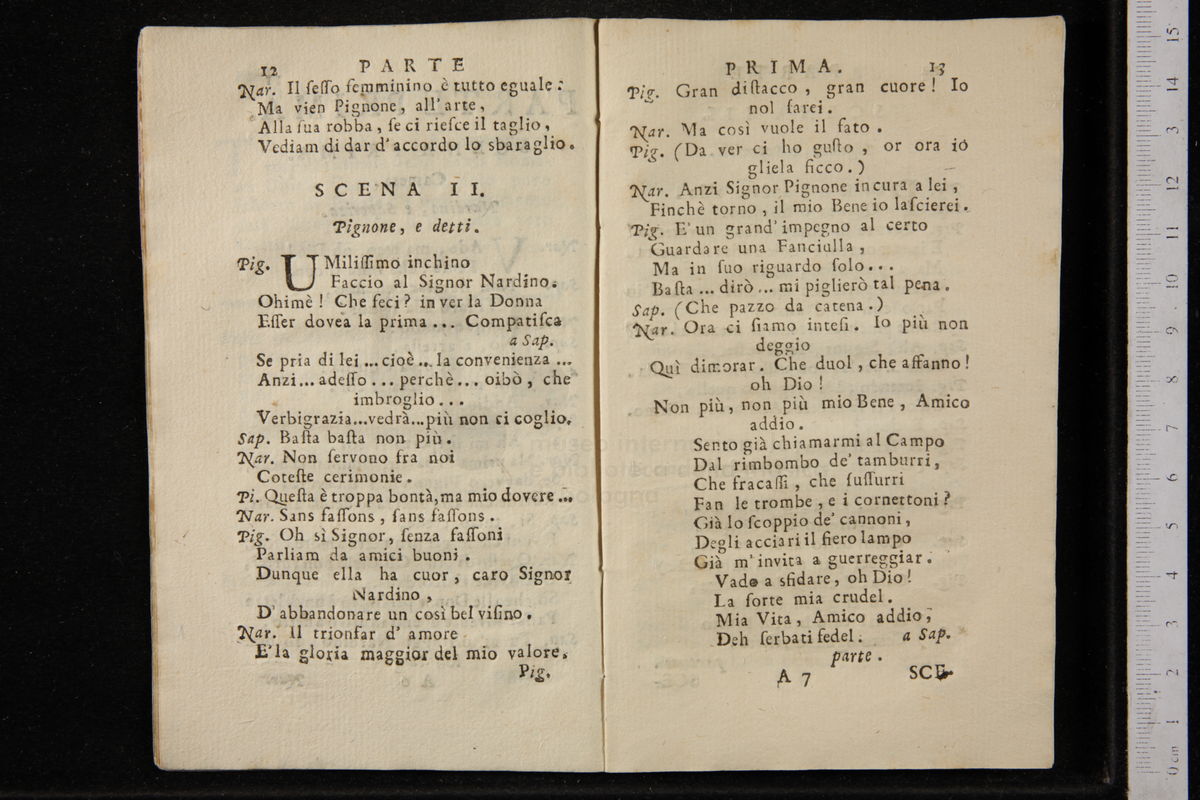 12 PARTE
Nar. Il ſeſſo femminino è tutto eguale:
Ma vien Pignone, all' arte,
Alla ſua robba, ſe ci rieſce il taglio,
Vediam di dar d' accordo lo sbaraglio.
SCENA II.
Pignone, e detti.
Pig. UMiliſſimo inchino
Faccio al Signor Nardino.
Ohimè! Che feci? in ver la Donna
Eſſer dovea la prima... Compatiſca
a Sap.
Se pria di lei... cioè... la convenienza...
Anzi... adeſſo... perchè... oibò, che
imbroglio...
Verbigrazia... vedrà... più non ci coglio.
Sap. Baſta baſta non più.
Nar. Non ſervono fra noi
Coteſte cerimonie.
Pi. Queſta è troppa bontà, ma mio dovere...
Nar. Sans faſſons, ſans faſſons.
Pig. Oh sì Signor, ſenza faſſoni
Parliam da amici buoni.
Dunque ella ha cuor, caro Signor
Nardino,
D' abbandonare un così bel viſino.
Nar. Il trionfar d' amore
E' la gloria maggior del mio valore.
Pig.
PRIMA. 13
Pig. Gran diſtacco, gran cuore! Io
nol farei.
Nar. Ma così vuole il fato.
Pig. (Da ver ci ho guſto, or ora io
gliela ficco.)
Nar. Anzi Signor Pignone in cura a lei,
Finchè torno, il mio Bene io laſcierei.
Pig. E' un grand' impegno al certo
Guardare una Fanciulla,
Ma in ſuo riguardo ſolo...
Baſta... dirò... mi piglierò tal pena.
Sap. (Che pazzo da catena.)
Nar. Ora ci ſiamo inteſi. Io più non
deggio
Quì dimorar. Che duol, che affanno!
oh Dio!
Non più, non più mio Bene, Amico
addio.
Sento già chiamarmi al Campo
Dal rimbombo de' tamburri,
Che fracaſſi, che ſuſſurri
Fan le trombe, e i cornettoni?
Già lo ſcoppio de' cannoni,
Degli acciari il fiero lampo
Già m' invita a guerreggiar.
Vado a sfidare, oh Dio!
La ſorte mia crudel.
Mia Vita, Amico addio,
Deh ſerbati fedel. a Sap.
parte.
A 7 SCE-